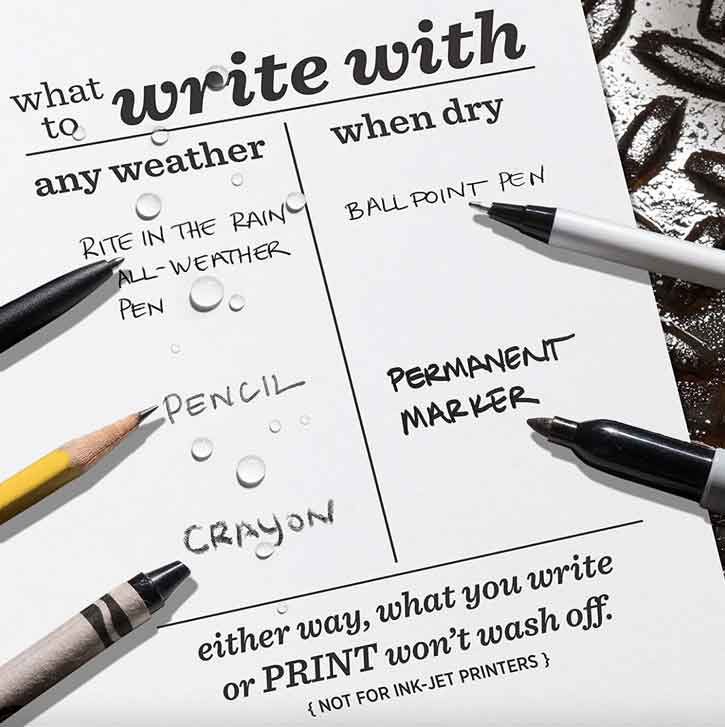 what to write with
any weather
RITE IN THE RAIN
ALL-WEATHER
PEN
PENCIL
CRAYON
when dry
BALLPOINT PEN
PERMANENT
MARKER
either way, what you write
or PRINT won't wash off.
{ NOT FOR INK-JET PRINTERS }